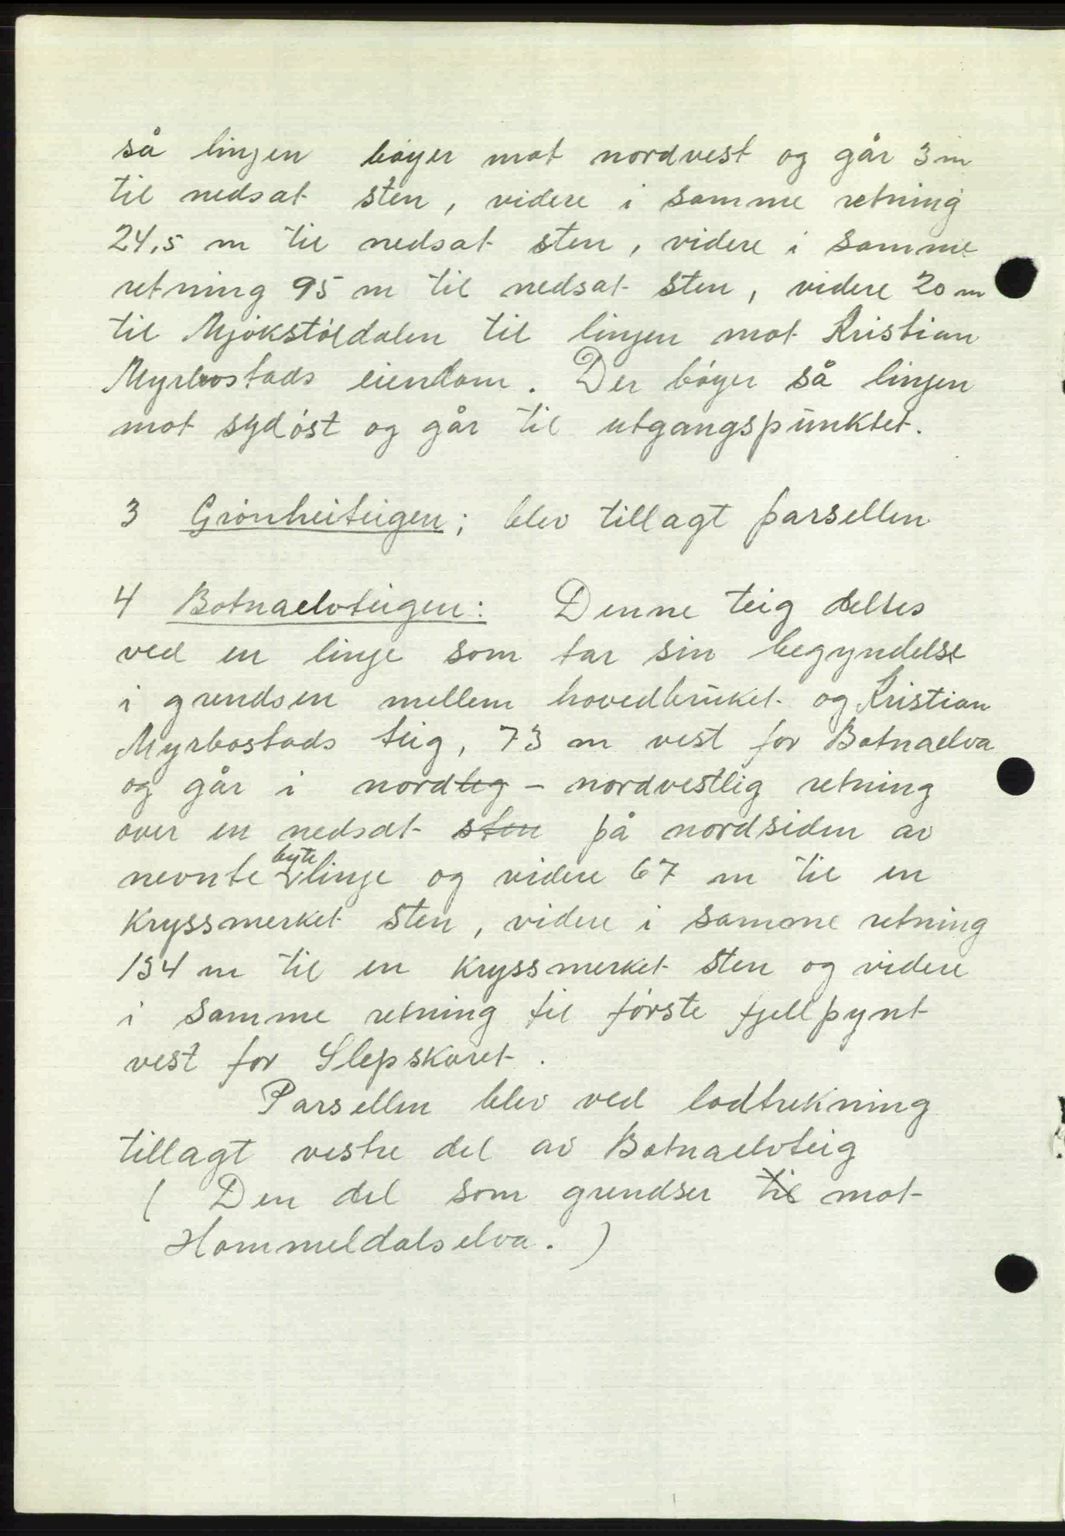 så linjen bøyer mot nordvest og går 3 m
til nedsat sten, videre i samme retning
24,5 m til nedsat sten, videre i samme
retning 95 m til nedsat sten, videre 20 m
til Mjøkstöldalen til linjen mot Kristian
Myrbostads eiendom. Der bøyer så linjen
mot sydøst og går til utgangspunktet.
3 Grönheiteigen; blev tillagt parsellen
4 Botnaelvteigen: Denne teig deltes
ved en linje som tar sin begyndelse
i grendsen mellem hovedbruket og Kristian
Myrbostads teig, 73 m vest for Botnaelva
og går i nordleg – nordvestlig retning
over en nedsat sten på nordsiden av
nevnte bytelinje og videre 67 m til en
kryssmerket sten, videre i samme retning
134 m til en kryssmerket sten og videre
i samme retning til første fjellpynt
vest for Slepskaret.
Parsellen blev ved lodtrekning
tillagt vestre del av Botnaelvteig
( Den del som grendser til mot
Hommeldalselva. )